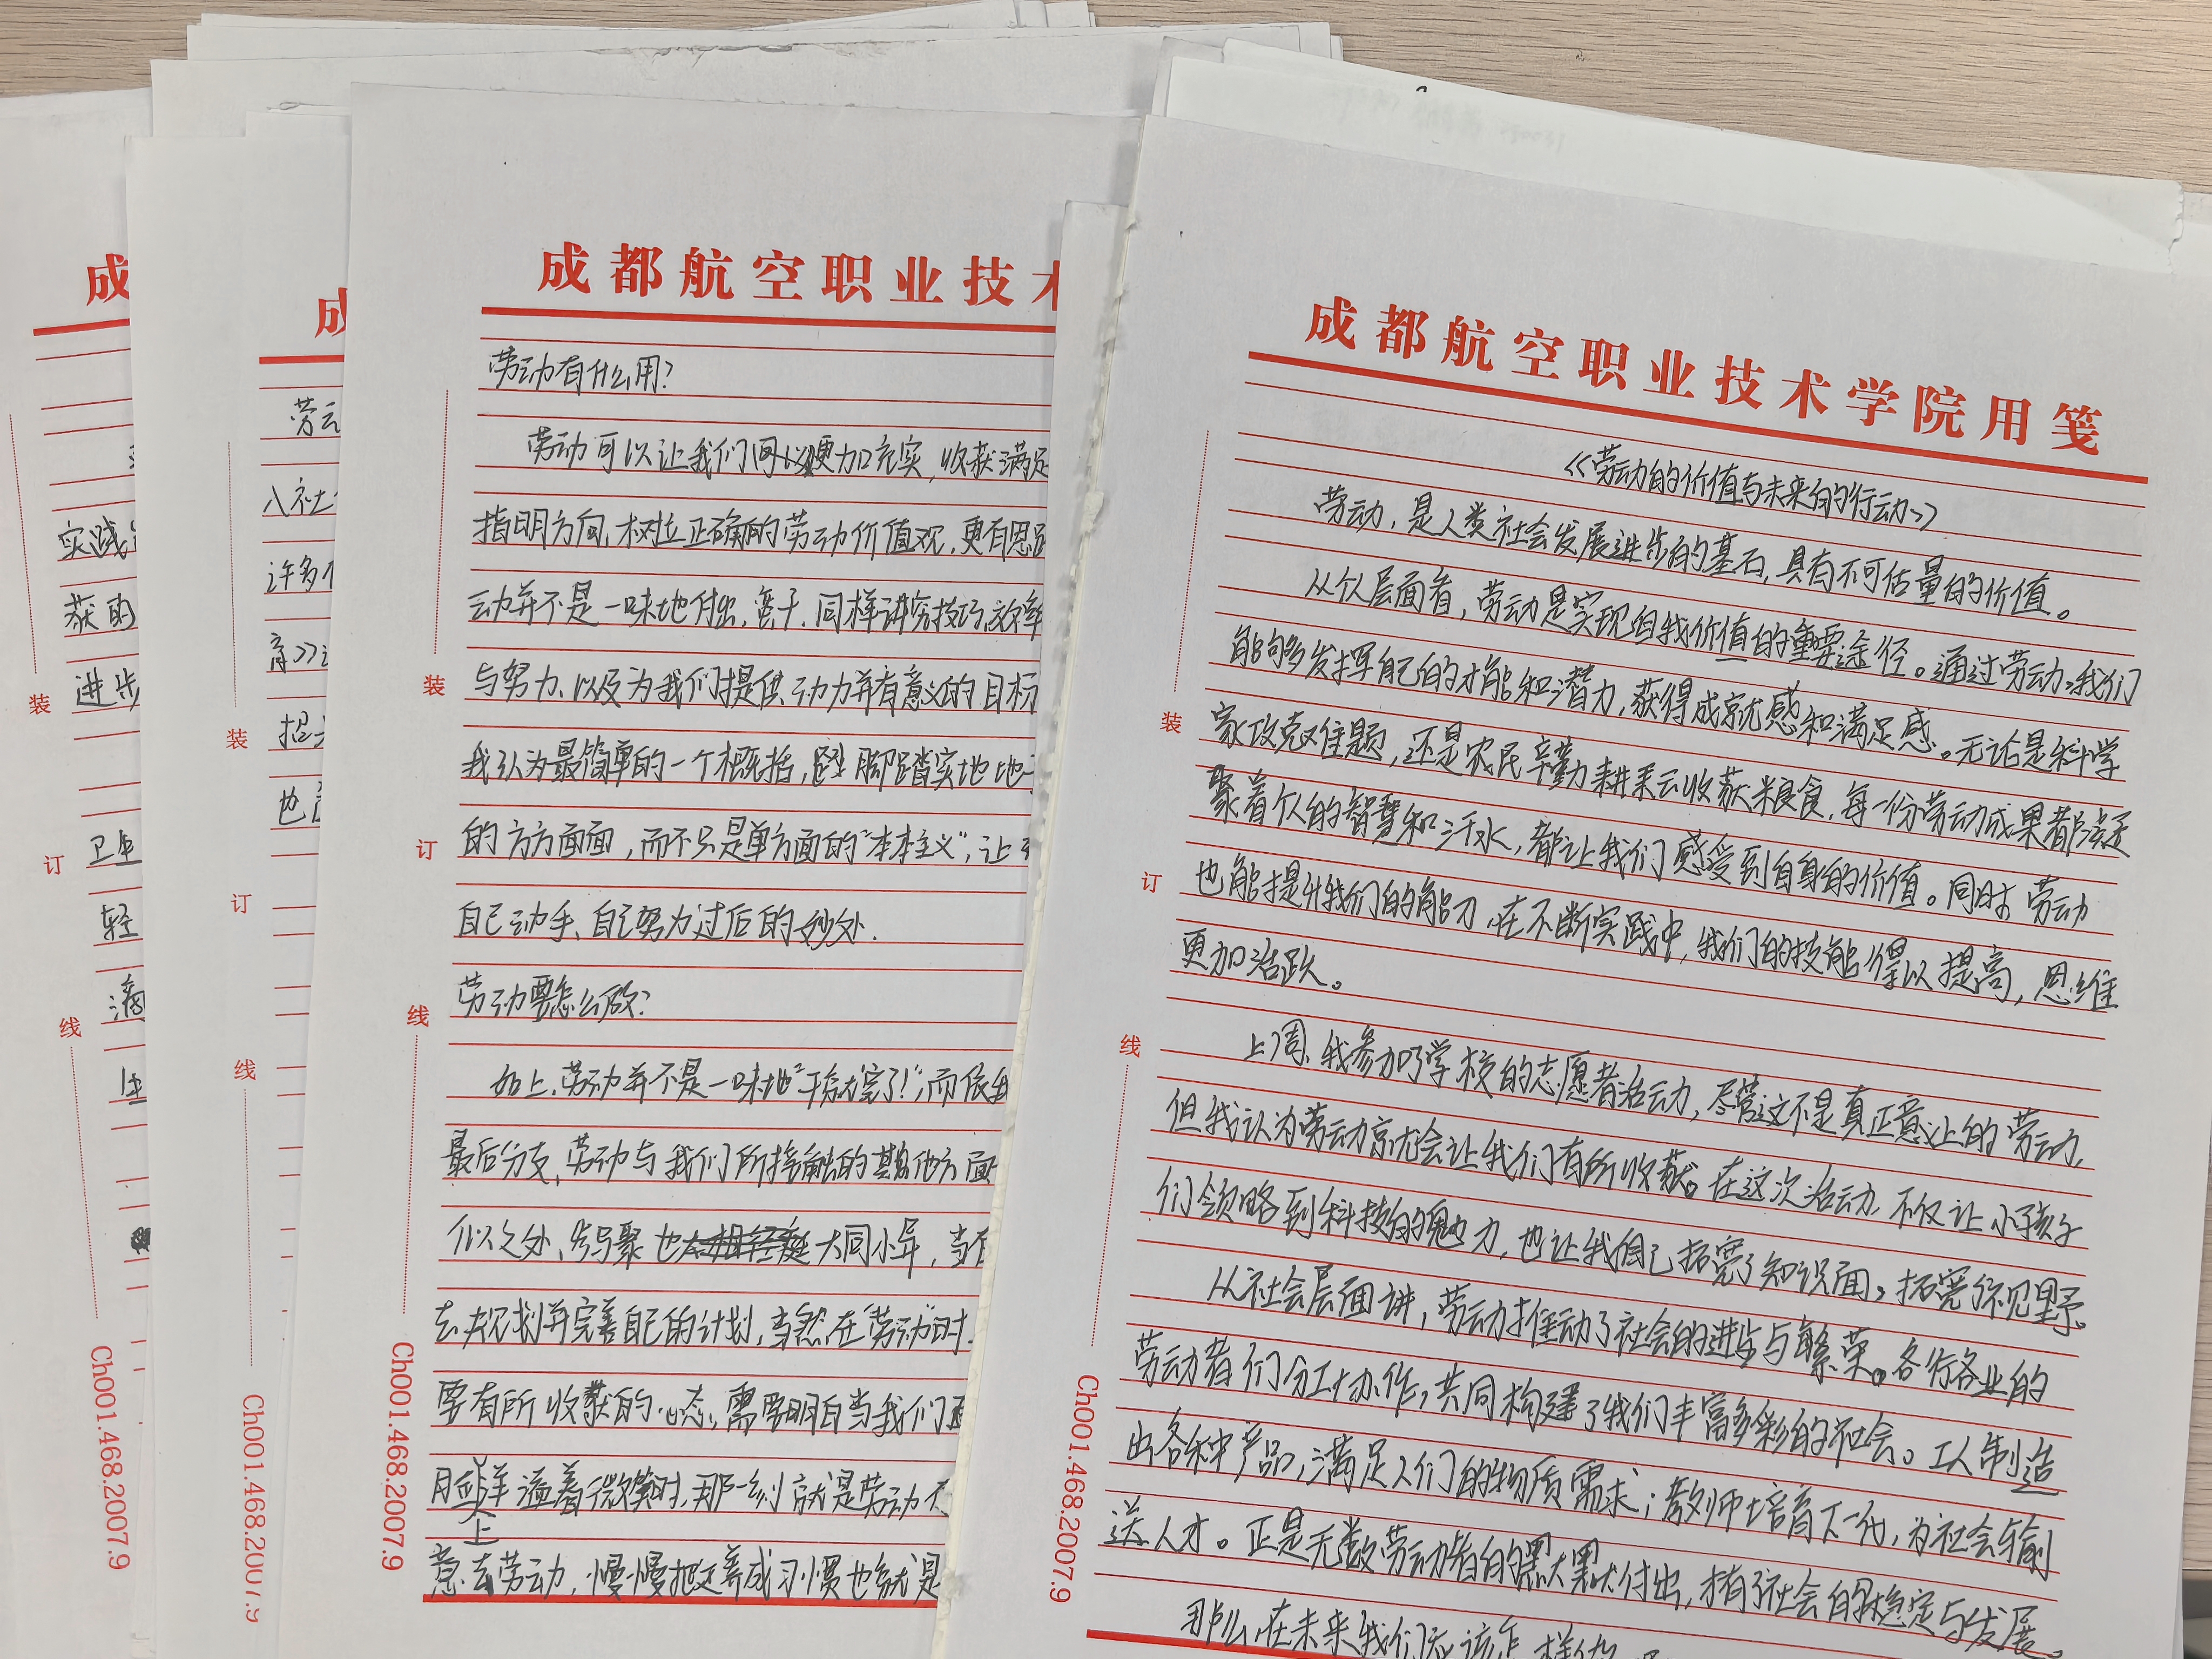 成
实践
获的
进步
卫生
轻
滴
装
订
线
Ch001.468.2007.9
成
劳动
入社
许多
育》
招
也
装
订
线
Ch001.468.2007.9
成都航空职业技术
劳动有什么用?
劳动可以让我们更加充实,收获满足
指明方向,树立正确的劳动价值观,更有思
动并不是一味地付出,苦干,同样讲究技巧,效率
与努力、以及为我们提供动力并有意义的目标
我认为最简单的一个概括,脚踏实地地
的方方面面,而不只是单方面的“本本主义”,让
自己动手、自己努力过后的妙处.
劳动要怎么做?
如上,劳动并不是一味地“干就完了!”,而依我
最后分支,劳动与我们所接触的其他方面
似之处、也大同小异,当
去规划并完善自己的计划,当然,在“劳动”时,
要有所收获的心态,需要明白当我们
脸上洋溢着微笑时,那一刻就是劳动
意去劳动,慢慢把这养成习惯也就是
装
订
线
Ch001.468.2007.9
成都航空职业技术学院用笺
《劳动的价值与未来的行动》
劳动,是人类社会发展进步的基石,具有不可估量的价值。
从个人层面看,劳动是实现自我价值的重要途径。通过劳动,我们
能够多发挥自己的才能和潜力,获得成就感和满足感。无论是科学
家攻克难题,还是农民辛勤耕耘收获粮食,每一份劳动成果都凝
聚着个人的智慧和汗水,都让我们感受到自身的价值。同时,劳动
也能提升我们的能力,在不断实践中,我们的技能得以提高,思维
更加活跃。
上周,我参加了学校的志愿者活动,尽管这不是真正意义上的劳动,
但我认为劳动就会让我们有所收获。在这次活动,不仅让小孩子
们领略到科技的魅力,也让我自己拓宽了知识面,拓宽了视野。
从社会层面讲,劳动推动了社会的进步与繁荣。各行各业的
劳动者们分工协作,共同构建了我们丰富多彩的社会。工人制造
出各种产品,满足人们的物质需求;教师培育下一代,为社会输
送人才。正是无数劳动者的默默付出,才有了社会的稳定与发展。
那么,在未来我们应该怎样做
装
订
线
Ch001.468.2007.9